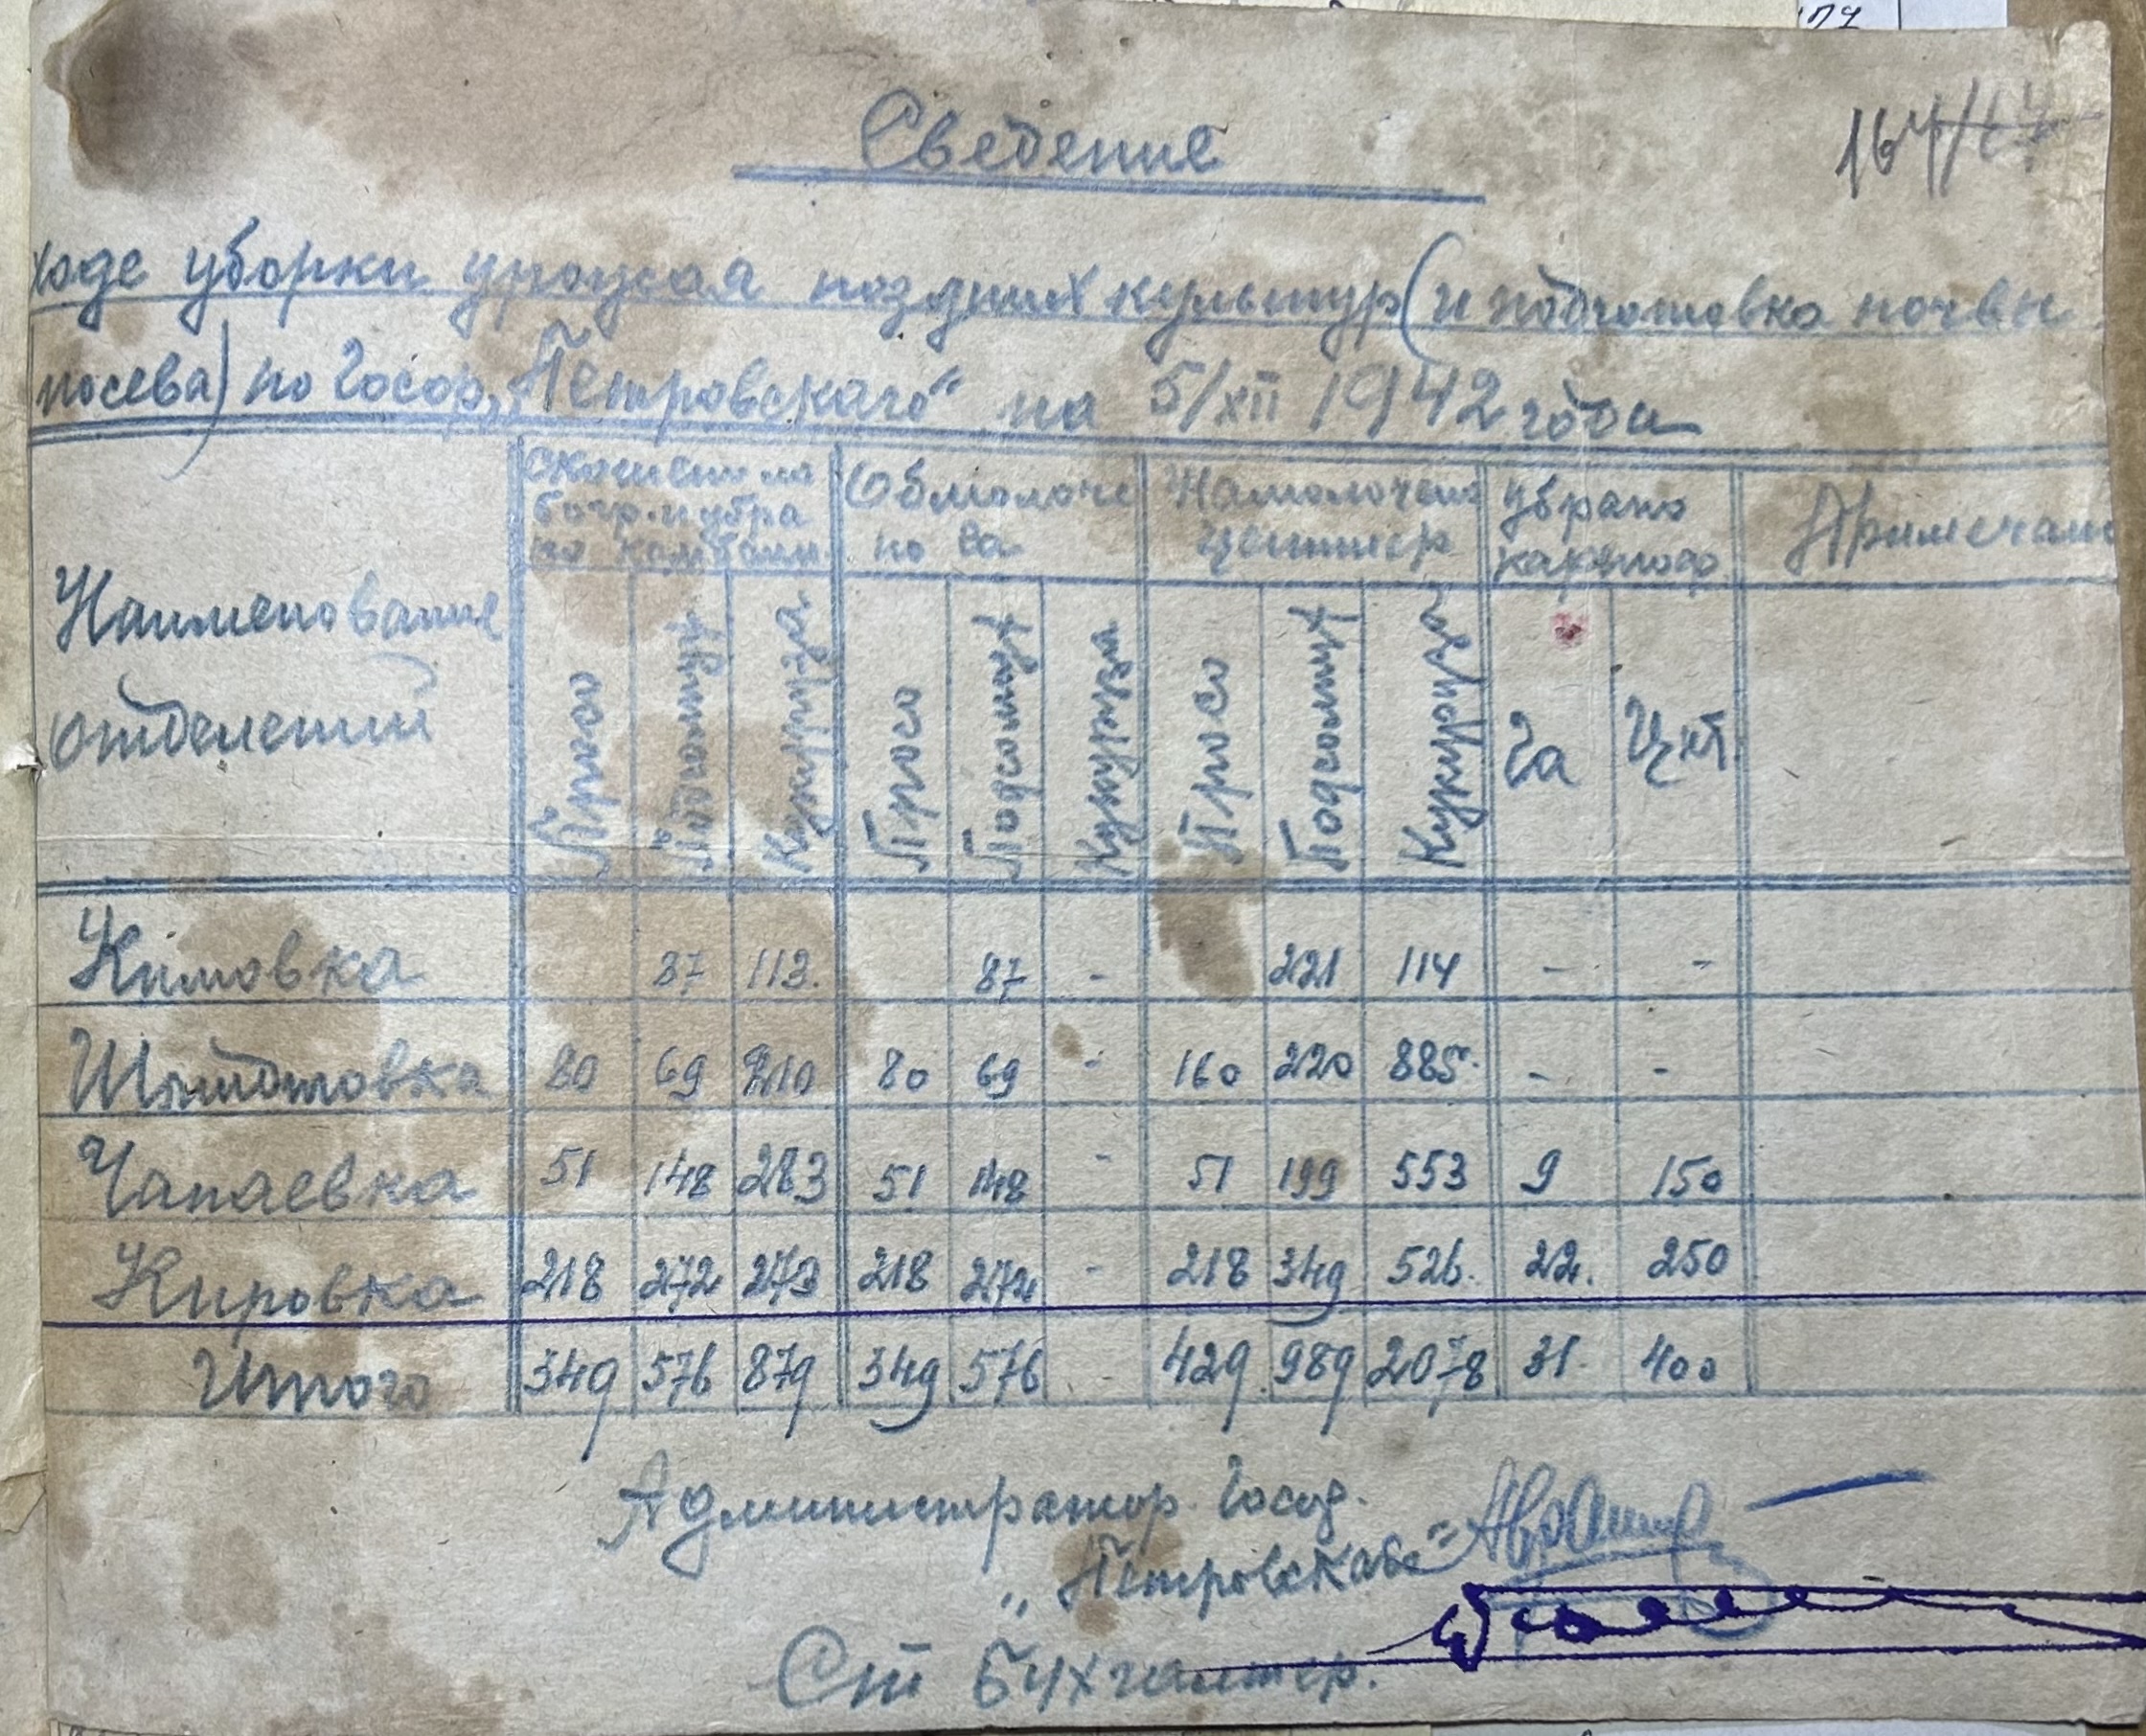 Сведение
ходе уборки урожая поздних культур (и подготовка почвы
посева) по Госор. „Петровскаго“ на 5/XII 1942 года
Наименование отделений
Обмолоче но га
Намолочено центнер
Убрано
Примечани
Просо Подсолнух Кукуруза Просо Подсолнух Кукуруза Просо Подсолнух Кукуруза Га Цнт.
Кимовка 87 113. 87 - 221 114 - -
80 69 210 80 69 - 160 220 885 - -
Чапаевка 51 148 283 51 148 - 51 199 553 9 150
Кировка 218 272 273 218 272 - 218 349 526. 22. 250
Итого 349 576 879 349 576 - 429 989 2078 31 400
Администратор Госод.
„Петровскаго“
Ст Бухгалтер.